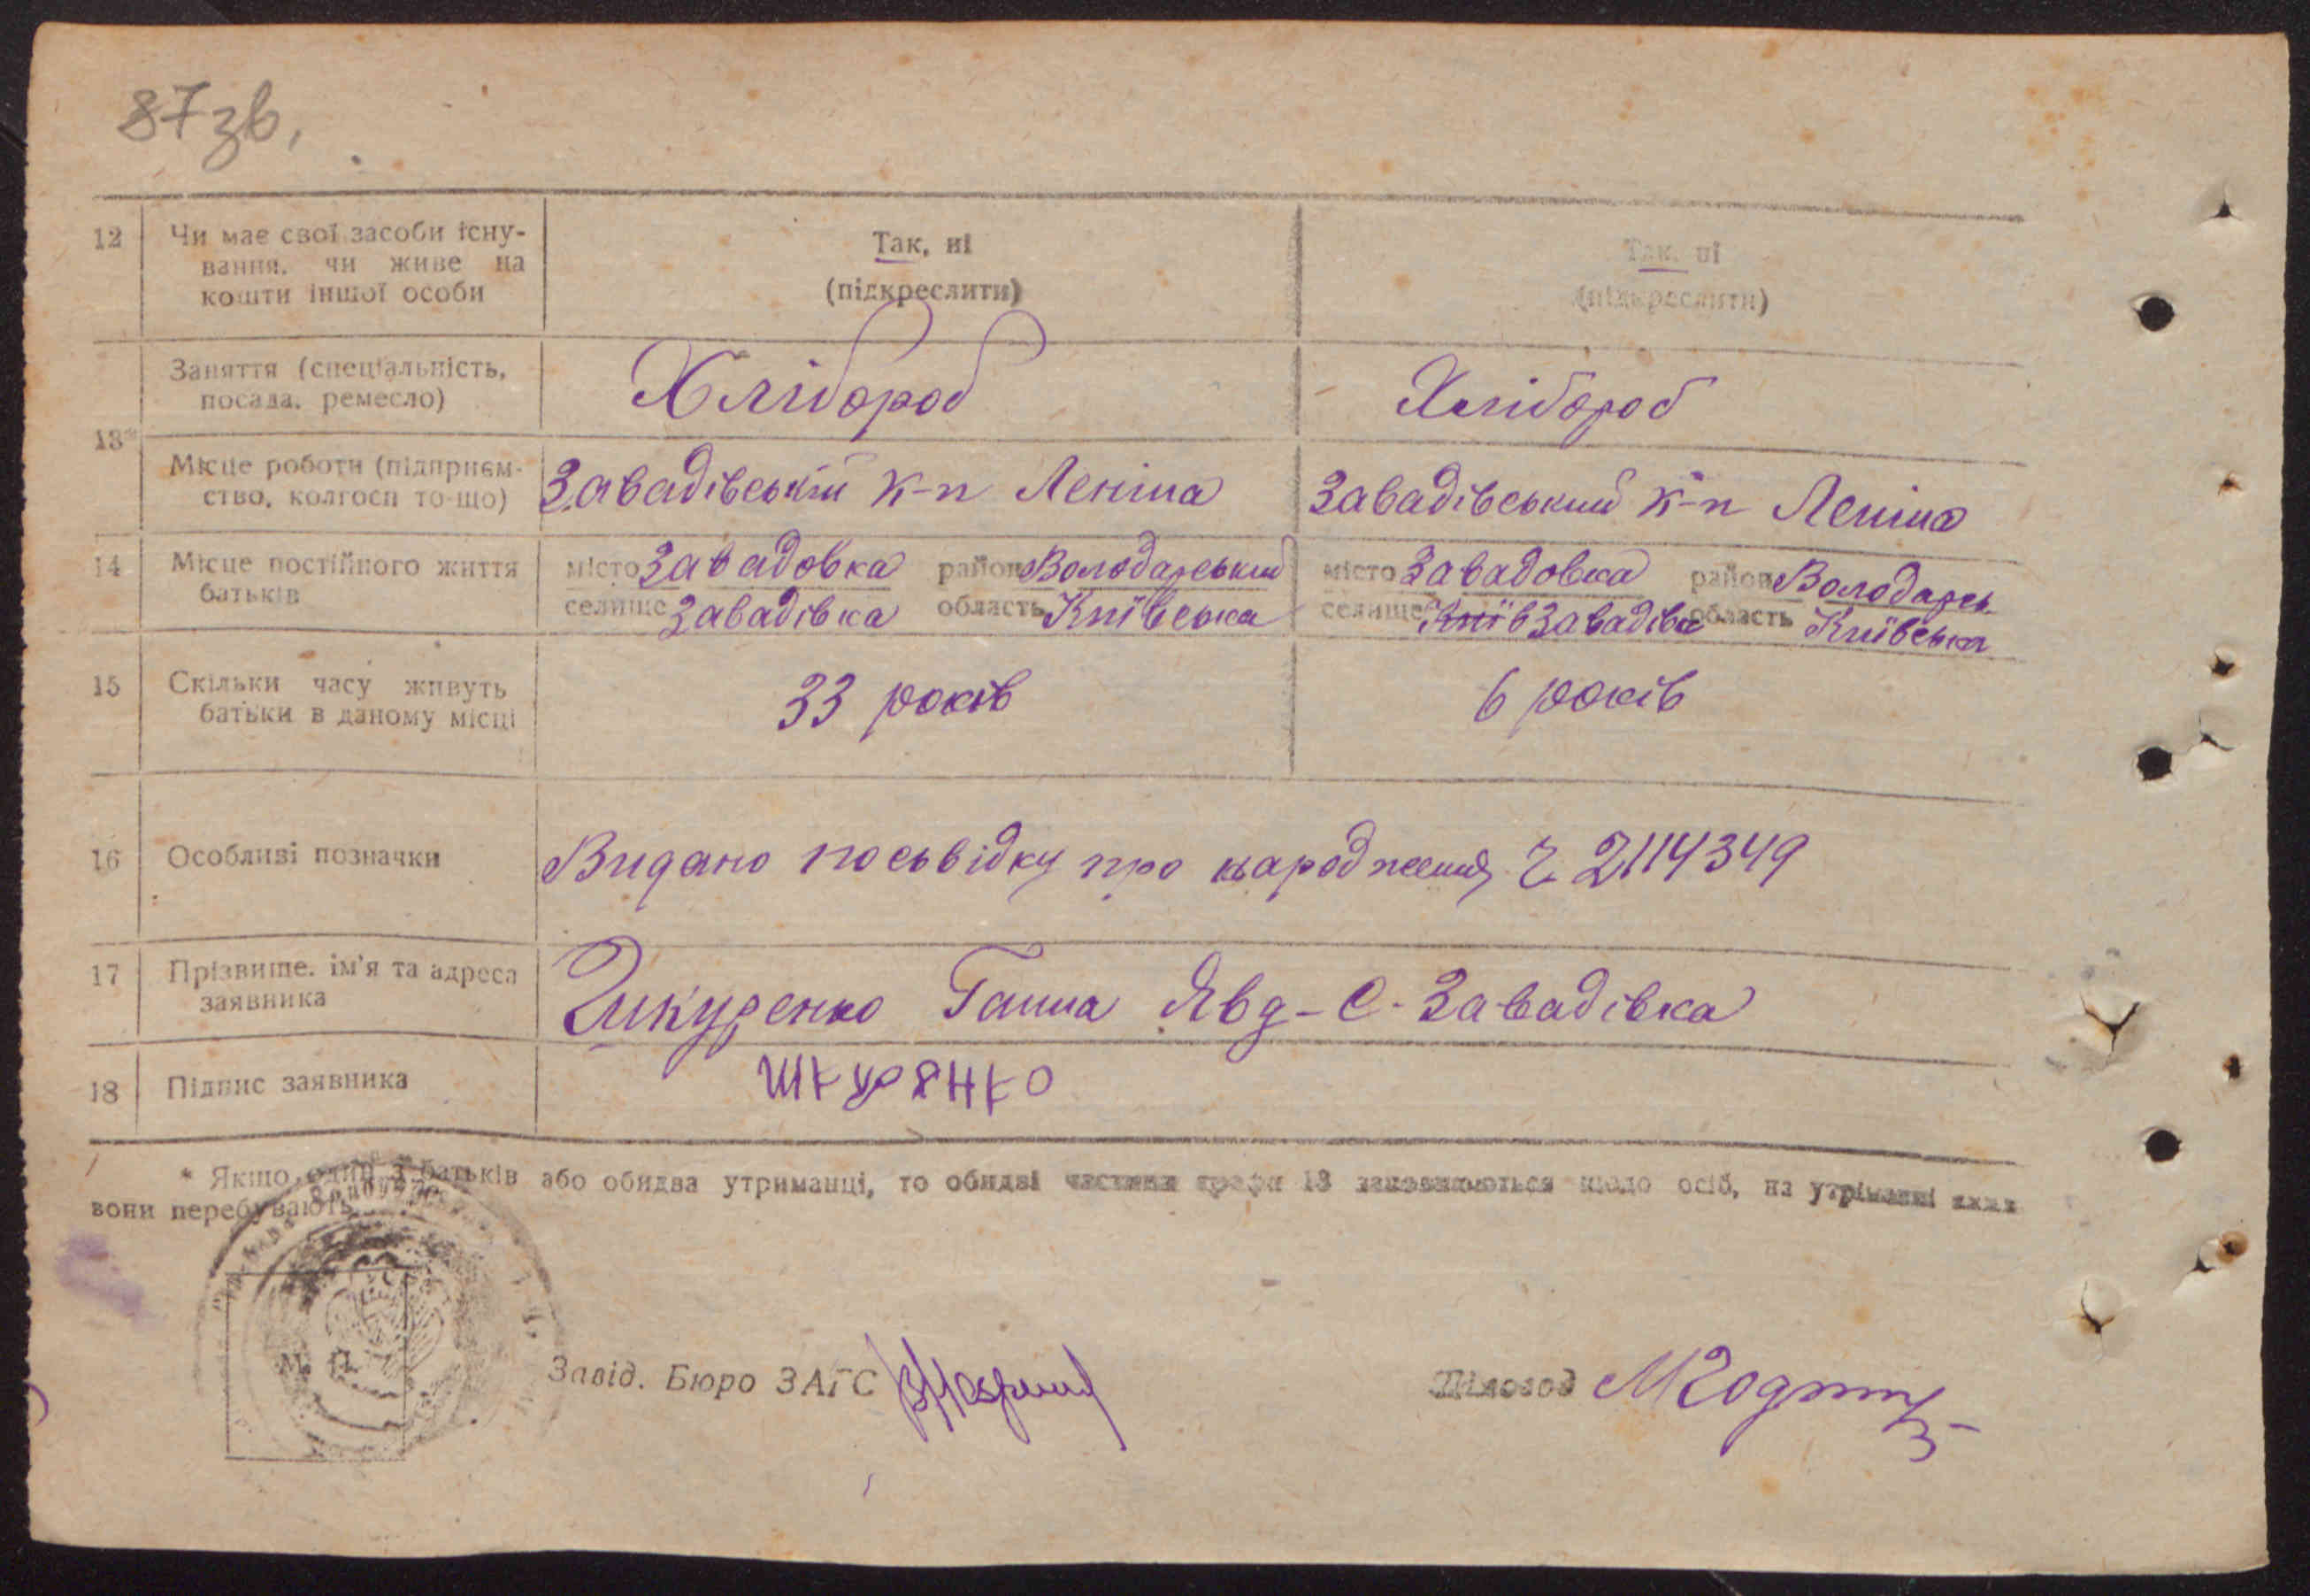 87зв.
12 Чи має свої засоби існу-
вання, чи живе на
кошти іншої особи
Так, ні
(підкреслити)
Так, ні
(підкреслити)
13*
Заняття (спеціальність,
посада, ремесло)
Хлібороб
Хлібороб
Місце роботи (підприєм-
ство, колгосп то-що)
Завадівський к-п Леніна
Завадівський к-п Леніна
14 Місце постійного життя
батьків
місто Завадовка район Володарський
селище Завадівка область Київська
місто Завадовка район Володарсь
селище Київ Завадівка область Київська
15 Скільки часу живуть
батьки в даному місці
33 років
6 років
16 Особливі позначки
Видано посьвідку про народження ч 2114349
17 Прізвище, ім'я та адреса
заявника
Шкуренко Ганна Явд - С. Завадівка
18 Підпис заявника
ШКУРЯНКО
* Якщо один з батьків або обидва утриманці, то обидві частини графи 13 заповнюються щодо осіб, на утріманні яких
вони перебувають.
М. П.
Завід. Бюро ЗАГС
Діловод